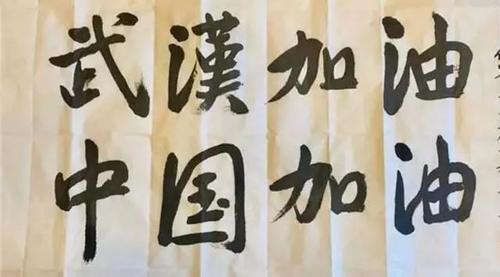 武漢加油
中国加油